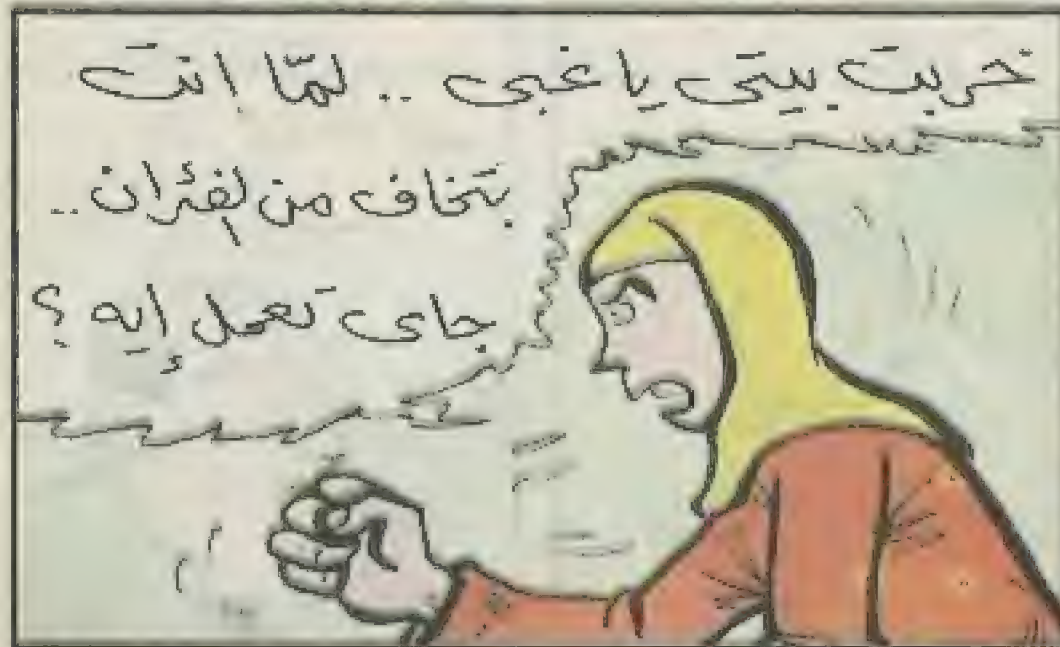 خربت بيتى يا غبى .. لمّا إنت
بتخاف من الفئران ..
جاى تعمل إيه ؟